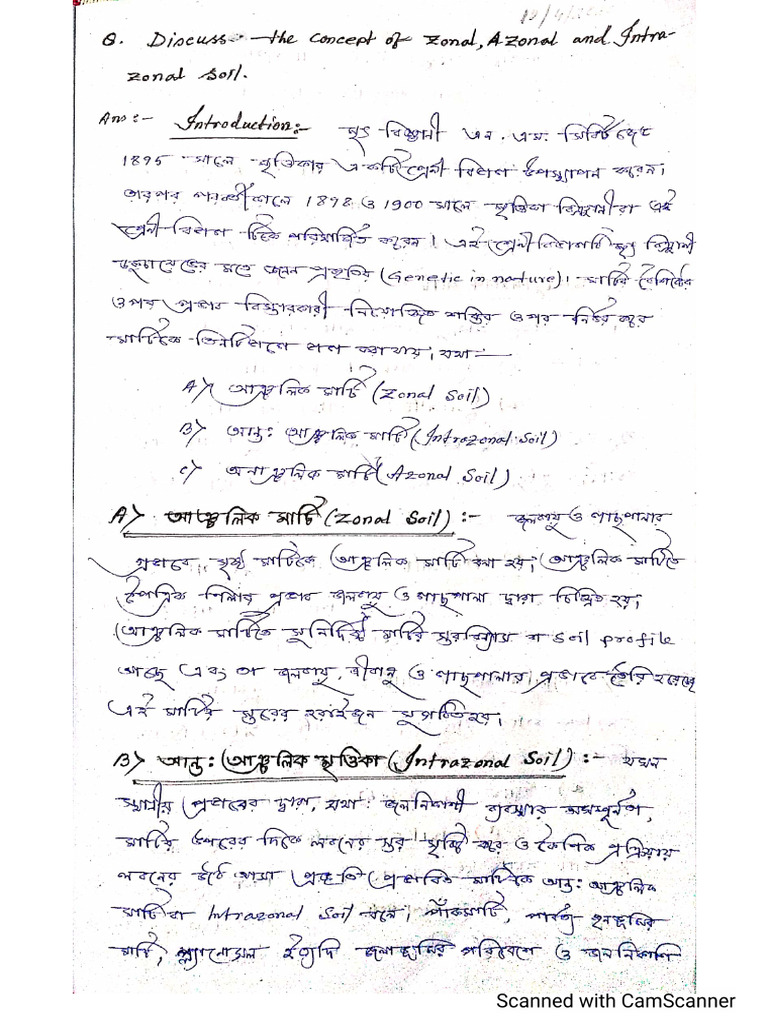 Q. Discuss the concept of Zonal, Azonal and Intra-
zonal Soil.
Ans :- Introduction:- মৃৎ বিজ্ঞানী এন. এম. সিবির্টজেভ
1895 সালে মৃত্তিকার একটি শ্রেণী বিভাগ উপস্থাপন করেন।
তারপর পরবর্তীকালে 1898 ও 1900 সালে মৃত্তিকা বিজ্ঞানীরা এই
শ্রেণী বিভাগ টিকে পরিমার্জিত করেন। এই শ্রেণীবিভাগটি মৃৎ বিজ্ঞানী
মতে জেনেটিক প্রকৃতির (Genetic in nature)। মাটির বৈশিষ্ট্যের
ওপর প্রভাব বিস্তারকারী নিয়োজিত শক্তির ওপর নির্ভর করে
মাটিকে তিনটিভাগে ভাগ করা যায়, যথা —
A) আঞ্চলিক মাটি (Zonal Soil)
B) আন্ত: আঞ্চলিক মাটি (Intrazonal Soil)
C) অনাঞ্চলিক মাটি (Azonal Soil)
A) আঞ্চলিক মাটি (Zonal Soil) :- জলবায়ু ও গাছপালার
প্রভাবে সৃষ্ট মাটিকে আঞ্চলিক মাটি বলা হয়; আঞ্চলিক মাটিতে
পৈত্রিক শিলার প্রভাব জলবায়ু ও গাছপালা দ্বারা চিহ্নিত হয়;
আঞ্চলিক মাটিতে সুনির্দিষ্ট মাটির স্তরবিন্যাস বা Soil profile
আছে এবং তা জলবায়ু, জীবাণু ও গাছপালার প্রভাবে তৈরি হয়েছে
এই মাটির স্তরের হরাইজন সুগঠিত হয়।
B) আন্ত: আঞ্চলিক মৃত্তিকা (Intrazonal Soil) :- যখন
স্থানীয় প্রভাবের দ্বারা, যথা: জলনিকাশী ব্যবস্থার অসম্পূর্ণতা,
মাটির উপরের দিকে লবনের স্তর সৃষ্টি করে ও কৈশিক প্রক্রিয়ায়
লবনের উঠে আসা প্রভৃতি প্রভাবিত মাটিকে আন্ত: আঞ্চলিক
মাটি বা Intrazonal Soil বলে। পাঁকমাটি, পার্বত্য তৃনভূমির
মাটি, প্ল্যানোসল ইত্যাদি জলাভূমির পরিবেশে ও জলনিকাশি
Scanned with CamScanner